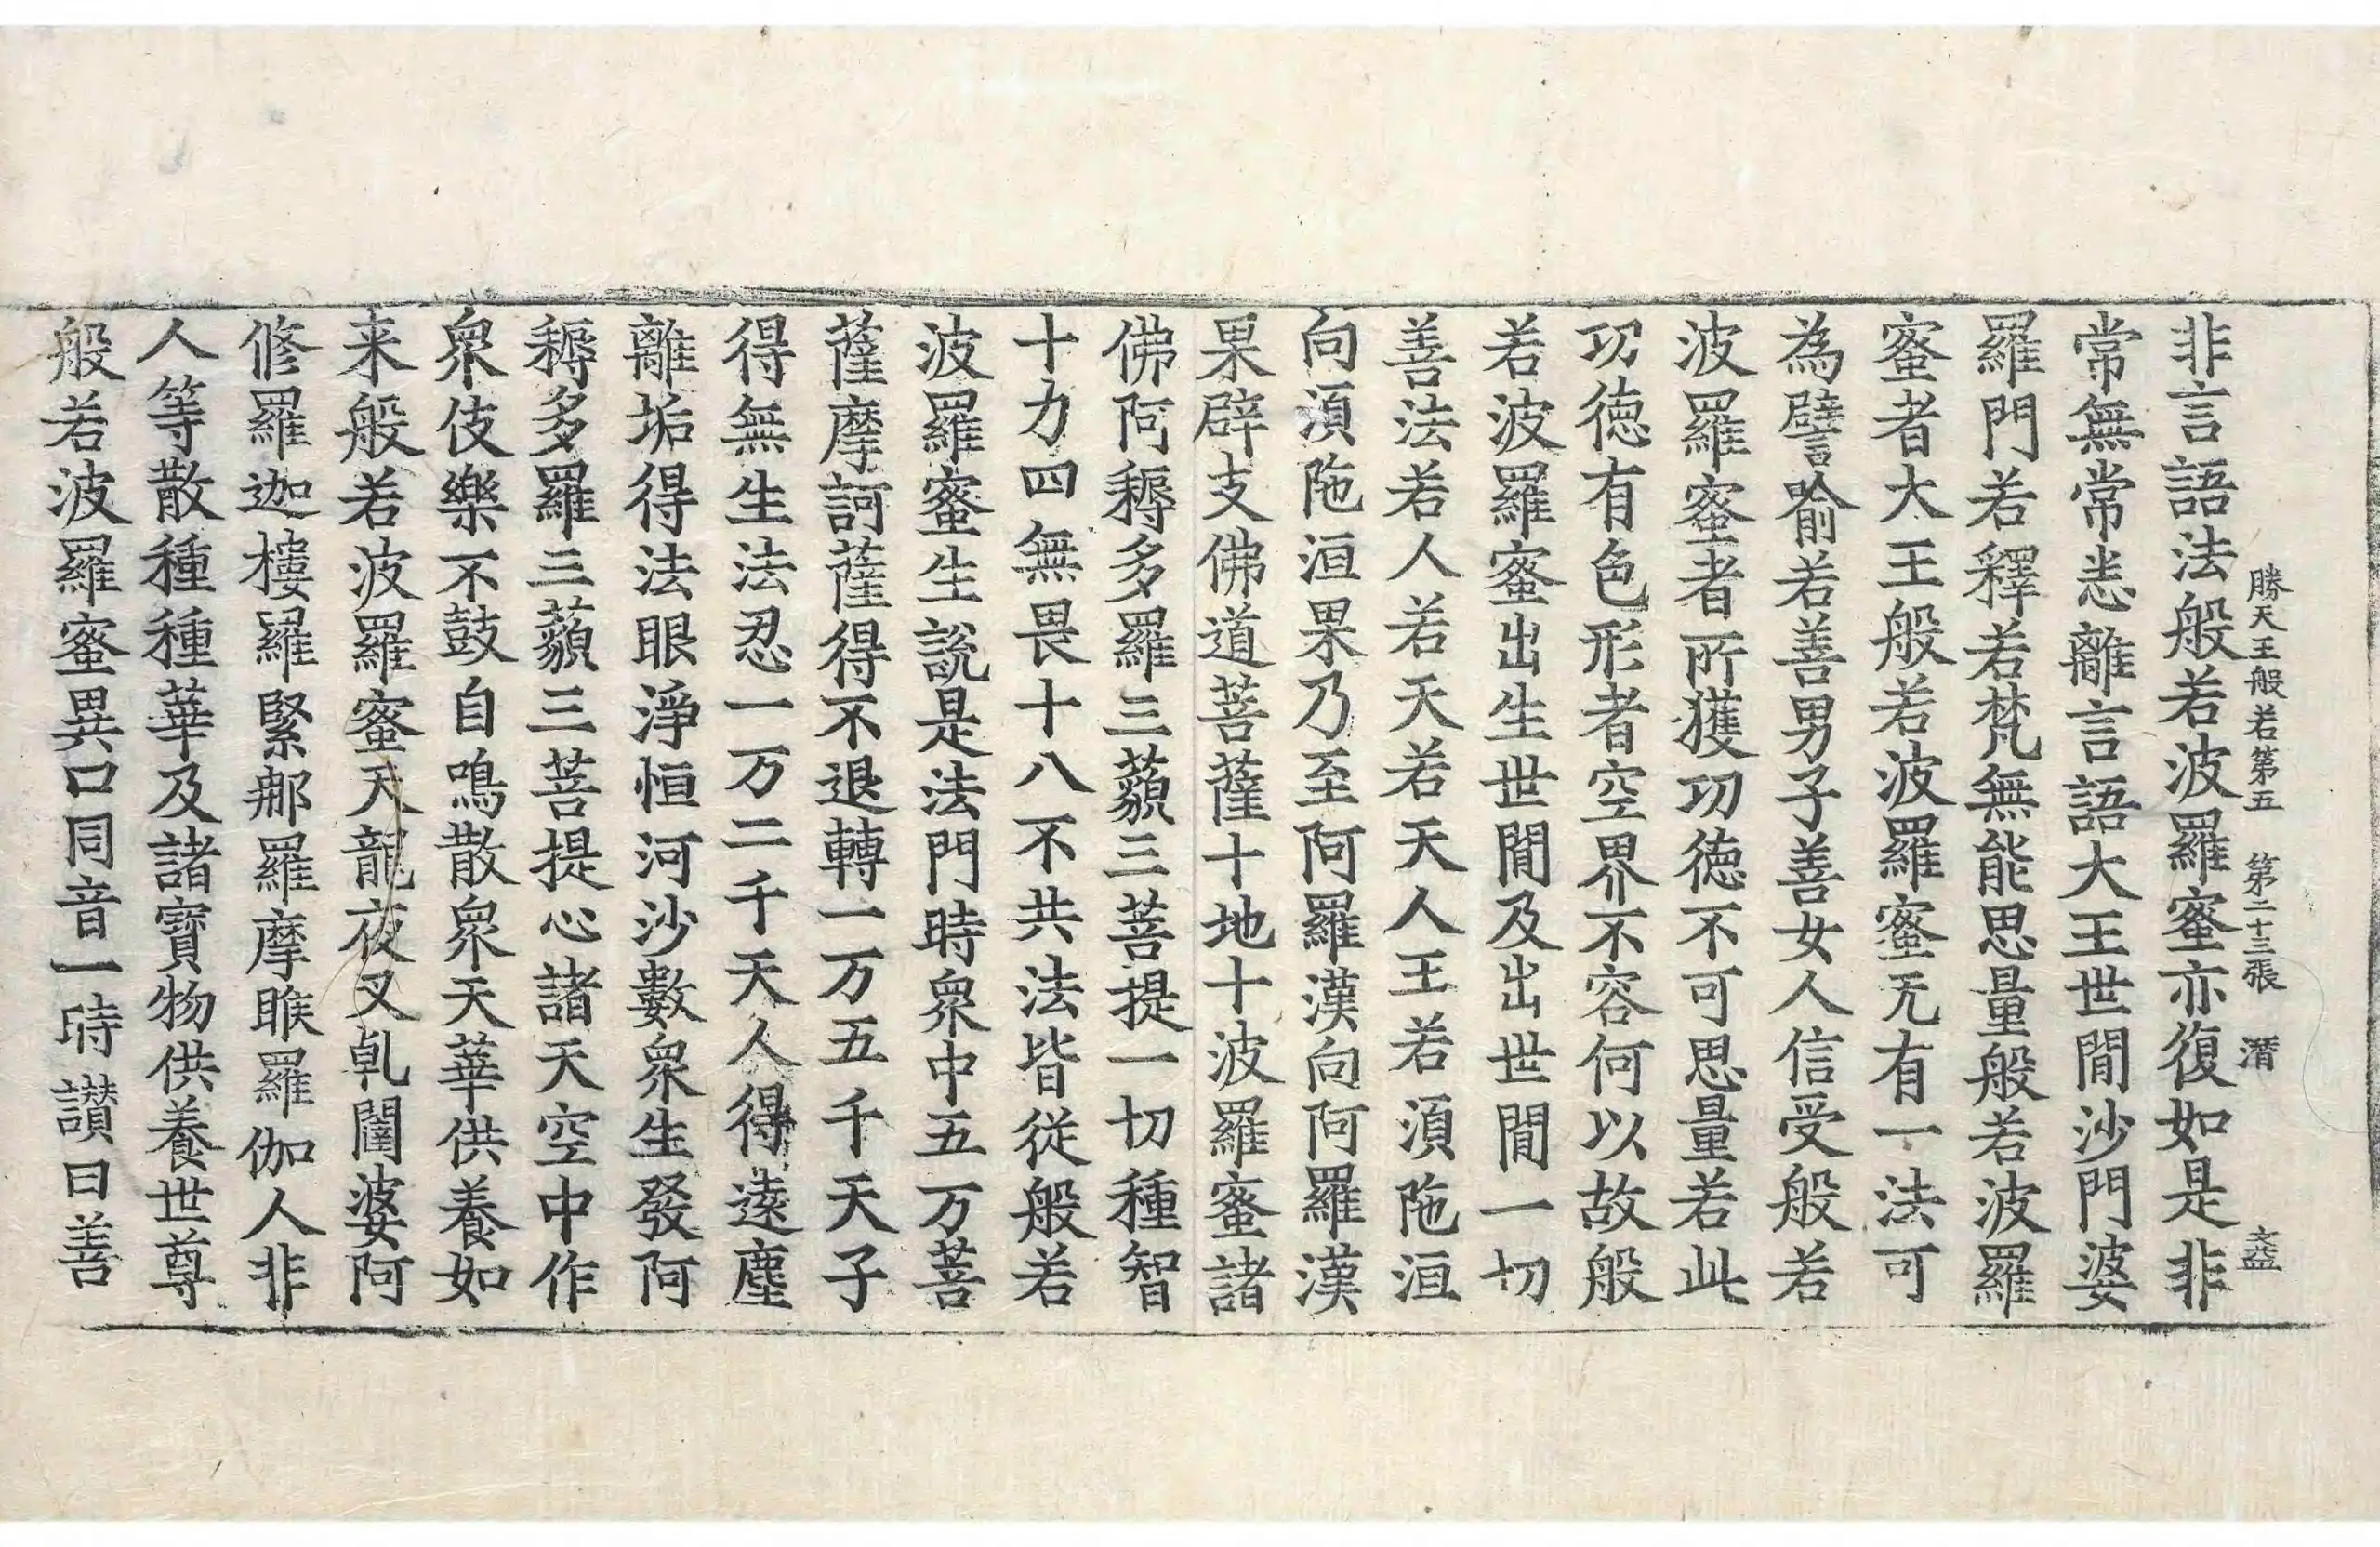 勝天王般若第五 第二十三張 潛 文益
非言語法般若波羅蜜亦復如是非
常無常悉離言語大王世閒沙門婆
羅門若釋若梵無能思量般若波羅
蜜者大王般若波羅蜜无有一法可
為譬喻若善男子善女人信受般若
波羅蜜者所獲功德不可思量若此
功德有色形者空界不容何以故般
若波羅蜜出生世閒及出世閒一切
善法若人若天若天人王若湏陁洹
向湏陁洹果乃至阿羅漢向阿羅漢
果辟支佛道菩薩十地十波羅蜜諸
佛阿耨多羅三藐三菩提一切種智
十力四無畏十八不共法皆從般若
波羅蜜生說是法門時衆中五万菩
薩摩訶薩得不退轉一万五千天子
得無生法忍一万二千天人得遠塵
離垢得法眼淨恒河沙數衆生發阿
耨多羅三藐三菩提心諸天空中作
衆伎樂不鼓自鳴散衆天華供養如
来般若波羅蜜天龍夜叉乹闥婆阿
修羅迦樓羅緊那羅摩睺羅伽人非
人等散種種華及諸寶物供養世尊
般若波羅蜜異口同音一時讃曰善